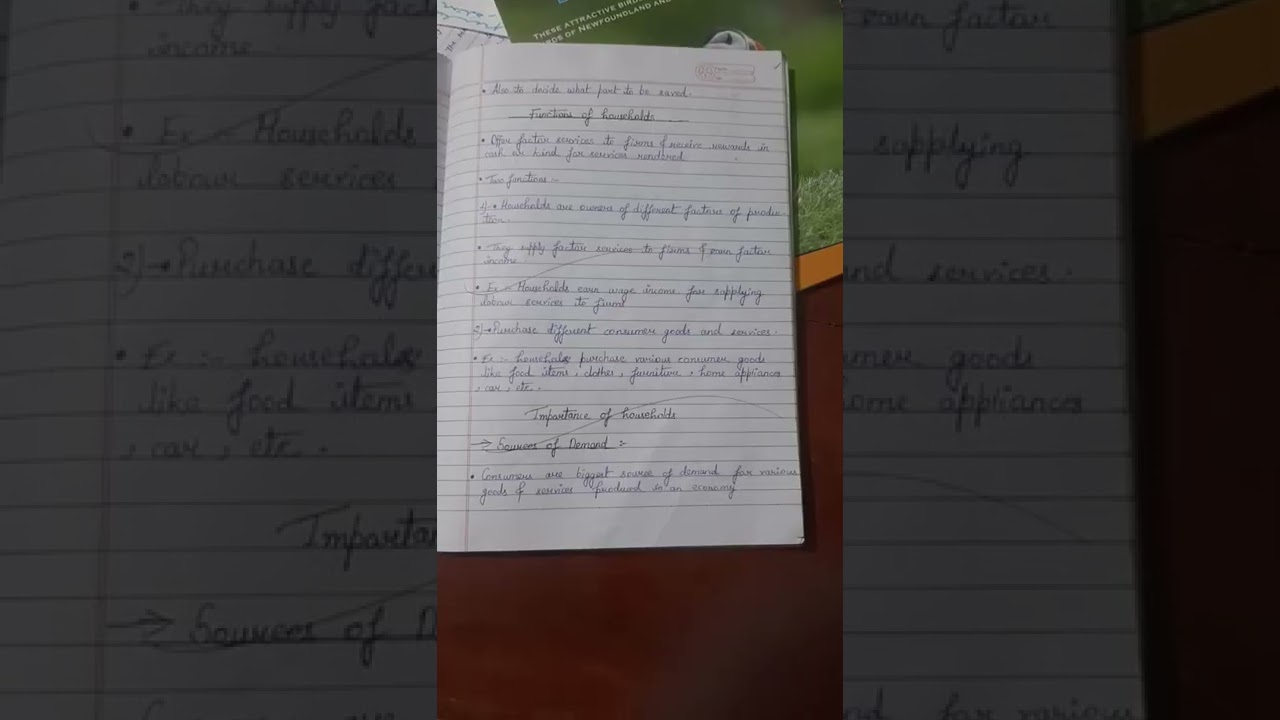 THESE ATTRACTIVE BIRDS
OF NEWFOUNDLAND AND
• Also to decide what part to be saved.
Functions of households
• Offer factor services to firms & receive rewards in
cash or kind for services rendered
• Two functions :-
1) • Households are owners of different factors of produc-
tion.
• They supply factor services to firms & earn factor
income
• Ex - Households earn wage income for supplying
labour services to firms
2) → Purchase different consumer goods and services.
• Ex :- households purchase various consumer goods
like food items, clothes, furniture, home appliances
, car, etc.
Importance of households
→ Sources of Demand :-
• Consumers are biggest source of demand for various
goods & services produced in an economy